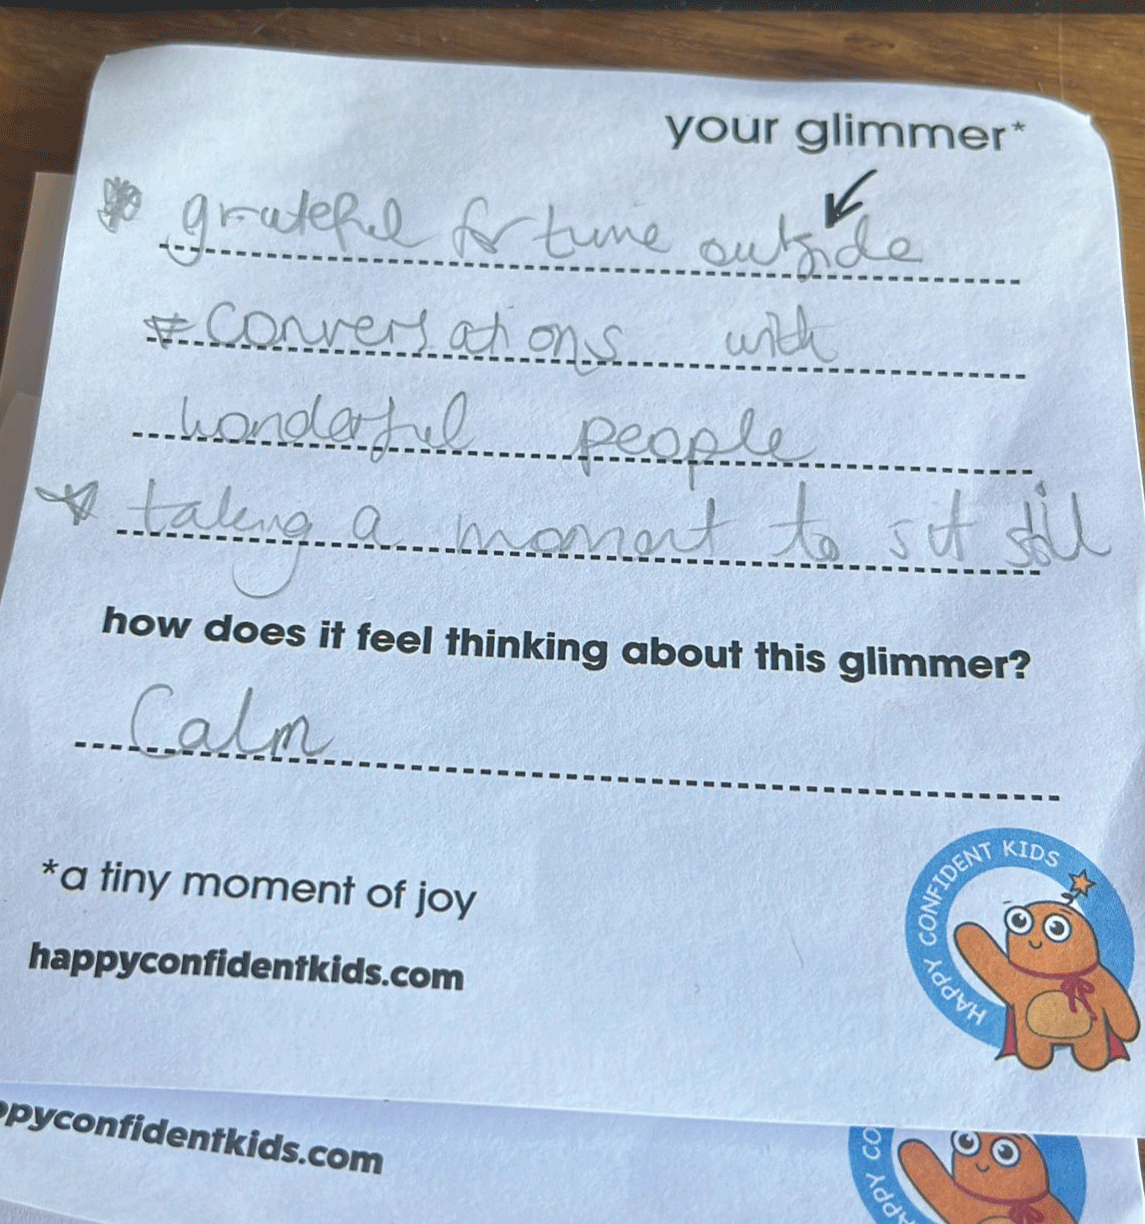 your glimmer*
* grateful for time outside
* conversations with
wonderful people
* taking a moment to sit still
how does it feel thinking about this glimmer?
Calm
*a tiny moment of joy
happyconfidentkids.com
HAPPY CONFIDENT KIDS
ppyconfidentkids.com
APPY CO